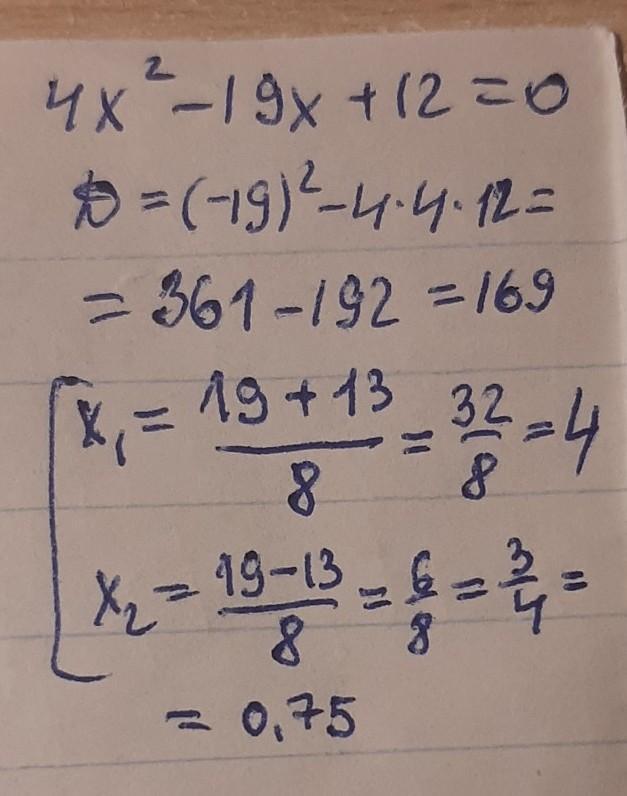 4x² - 19x + 12 = 0
D = (-19)² - 4·4·12 =
= 361 - 192 = 169
x₁ = (19 + 13)/8 = 32/8 = 4
x₂ = (19 - 13)/8 = 6/8 = 3/4 =
= 0,75